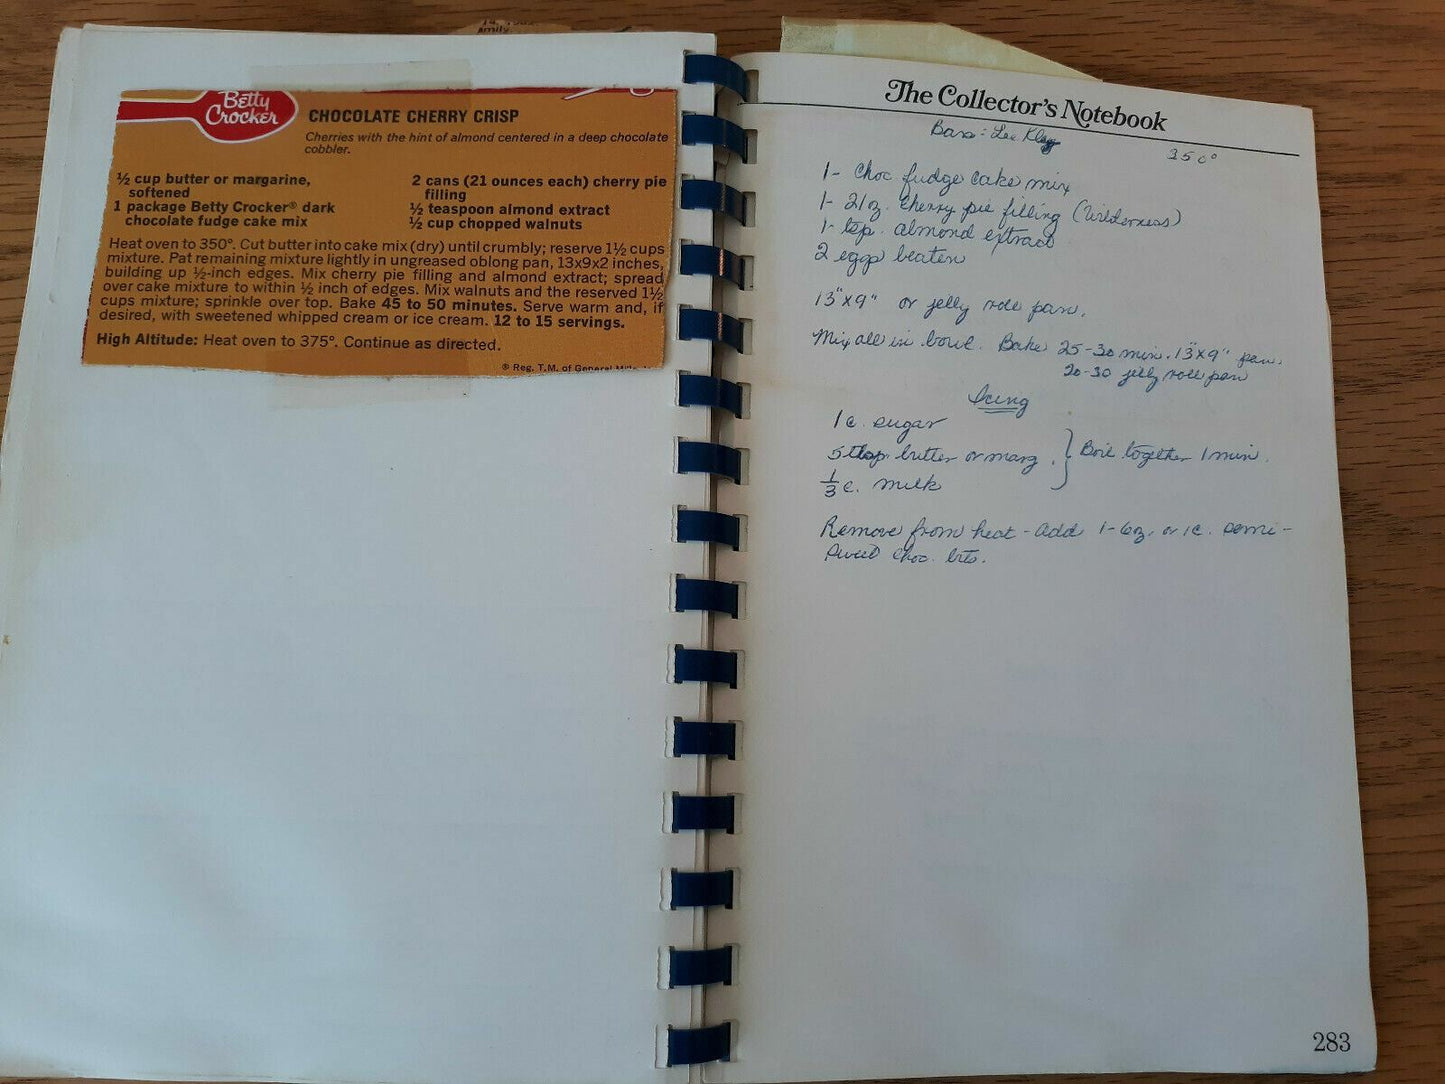 Betty
Crocker
CHOCOLATE CHERRY CRISP
Cherries with the hint of almond centered in a deep chocolate
cobbler.
½ cup butter or margarine,
softened
1 package Betty Crocker® dark
chocolate fudge cake mix
2 cans (21 ounces each) cherry pie
filling
½ teaspoon almond extract
½ cup chopped walnuts
Heat oven to 350°. Cut butter into cake mix (dry) until crumbly; reserve 1½ cups
mixture. Pat remaining mixture lightly in ungreased oblong pan, 13x9x2 inches,
building up ½-inch edges. Mix cherry pie filling and almond extract; spread
over cake mixture to within ½ inch of edges. Mix walnuts and the reserved 1½
cups mixture; sprinkle over top. Bake 45 to 50 minutes. Serve warm and, if
desired, with sweetened whipped cream or ice cream. 12 to 15 servings.
High Altitude: Heat oven to 375°. Continue as directed.
® Reg. T.M. of General
The Collector's Notebook
Bars: Lee
350°
1- Choc fudge cake mix
1- 21oz. cherry pie filling (Wilderness)
1- tsp. almond extract
2 eggs beaten
13"x9" or jelly roll pan.
Mix all in bowl. Bake 25-30 min. 13"x9" pan.
20-30 jelly roll pan
Icing
1 c. sugar
5 tbsp. butter or marg.
1/3 c. milk
} Boil together 1 min.
Remove from heat - Add 1-6oz. or 1c. semi-
sweet choc. bits.
283